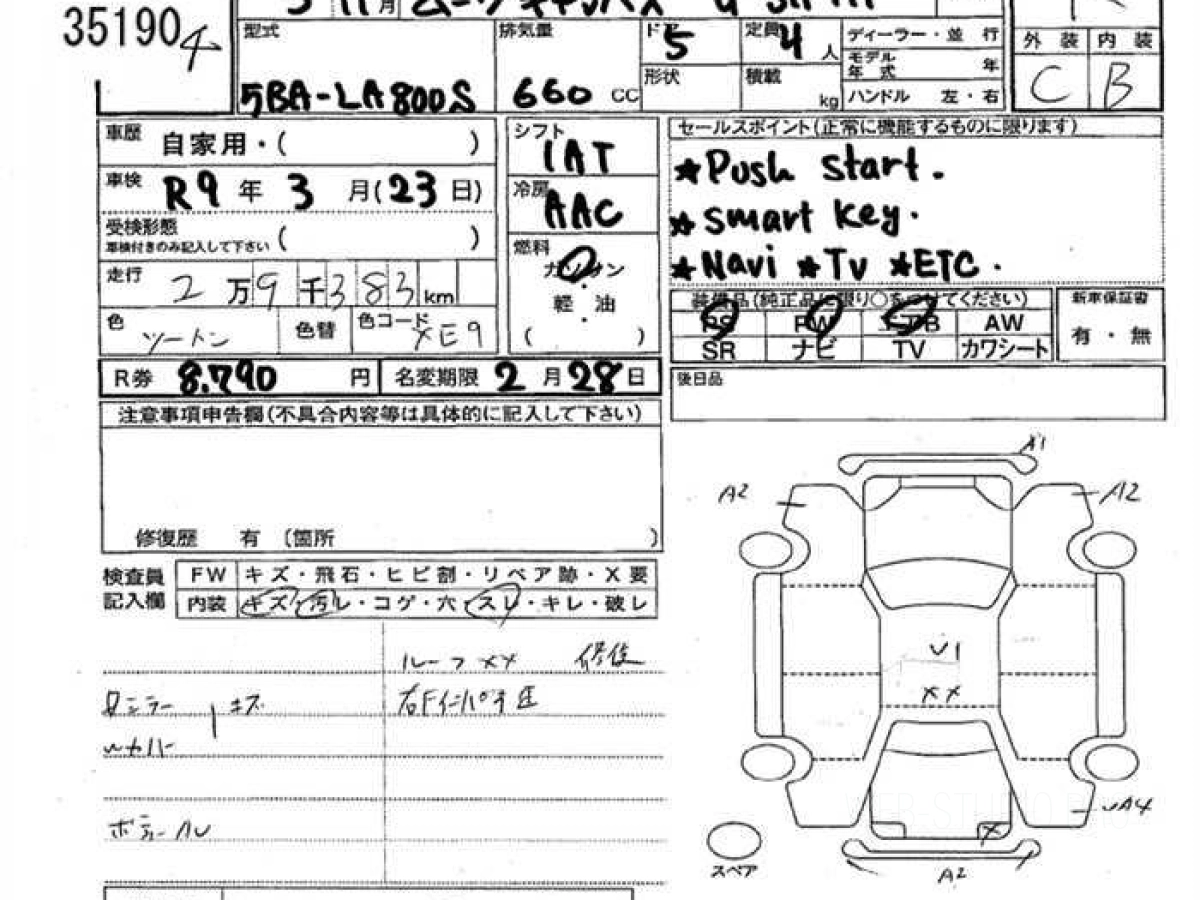 35190 4
型式 5BA-LA800S
排気量 660 CC
ドア 5
定員 4 人
形状
積載 kg
ディーラー・並行
モデル年式 年
ハンドル 左・右
外装 内装
C B
車歴 自家用・( )
車検 R9年3月(23日)
受検形態
車検付きのみ記入して下さい ( )
走行 2万9千383km
色 ツートン 色替 色コード XE9
シフト IAT
冷房 AAC
燃料
ガソリン
・
軽・油
・
( )
セールスポイント(正常に機能するものに限ります)
★Push start.
★smart key.
★Navi ★TV ★ETC.
装備品(純正品に限り○をつけてください)
PS PW エアB AW
SR ナビ TV カワシート
新車保証書
有・無
R券 8.790 円 名変期限 2月28日
後日品
注意事項申告欄(不具合内容等は具体的に記入して下さい)
修復歴 有 (箇所 )
検査員
記入欄
FW キズ・飛石・ヒビ割・リペア跡・X要
内装 キズ・汚レ・コゲ・穴・スレ・キレ・破レ
ルーフ XX
ミラー キズ
カバー
ボディー AU
A1
A2
A2
U1
XX
UA4
X
A2
スペア